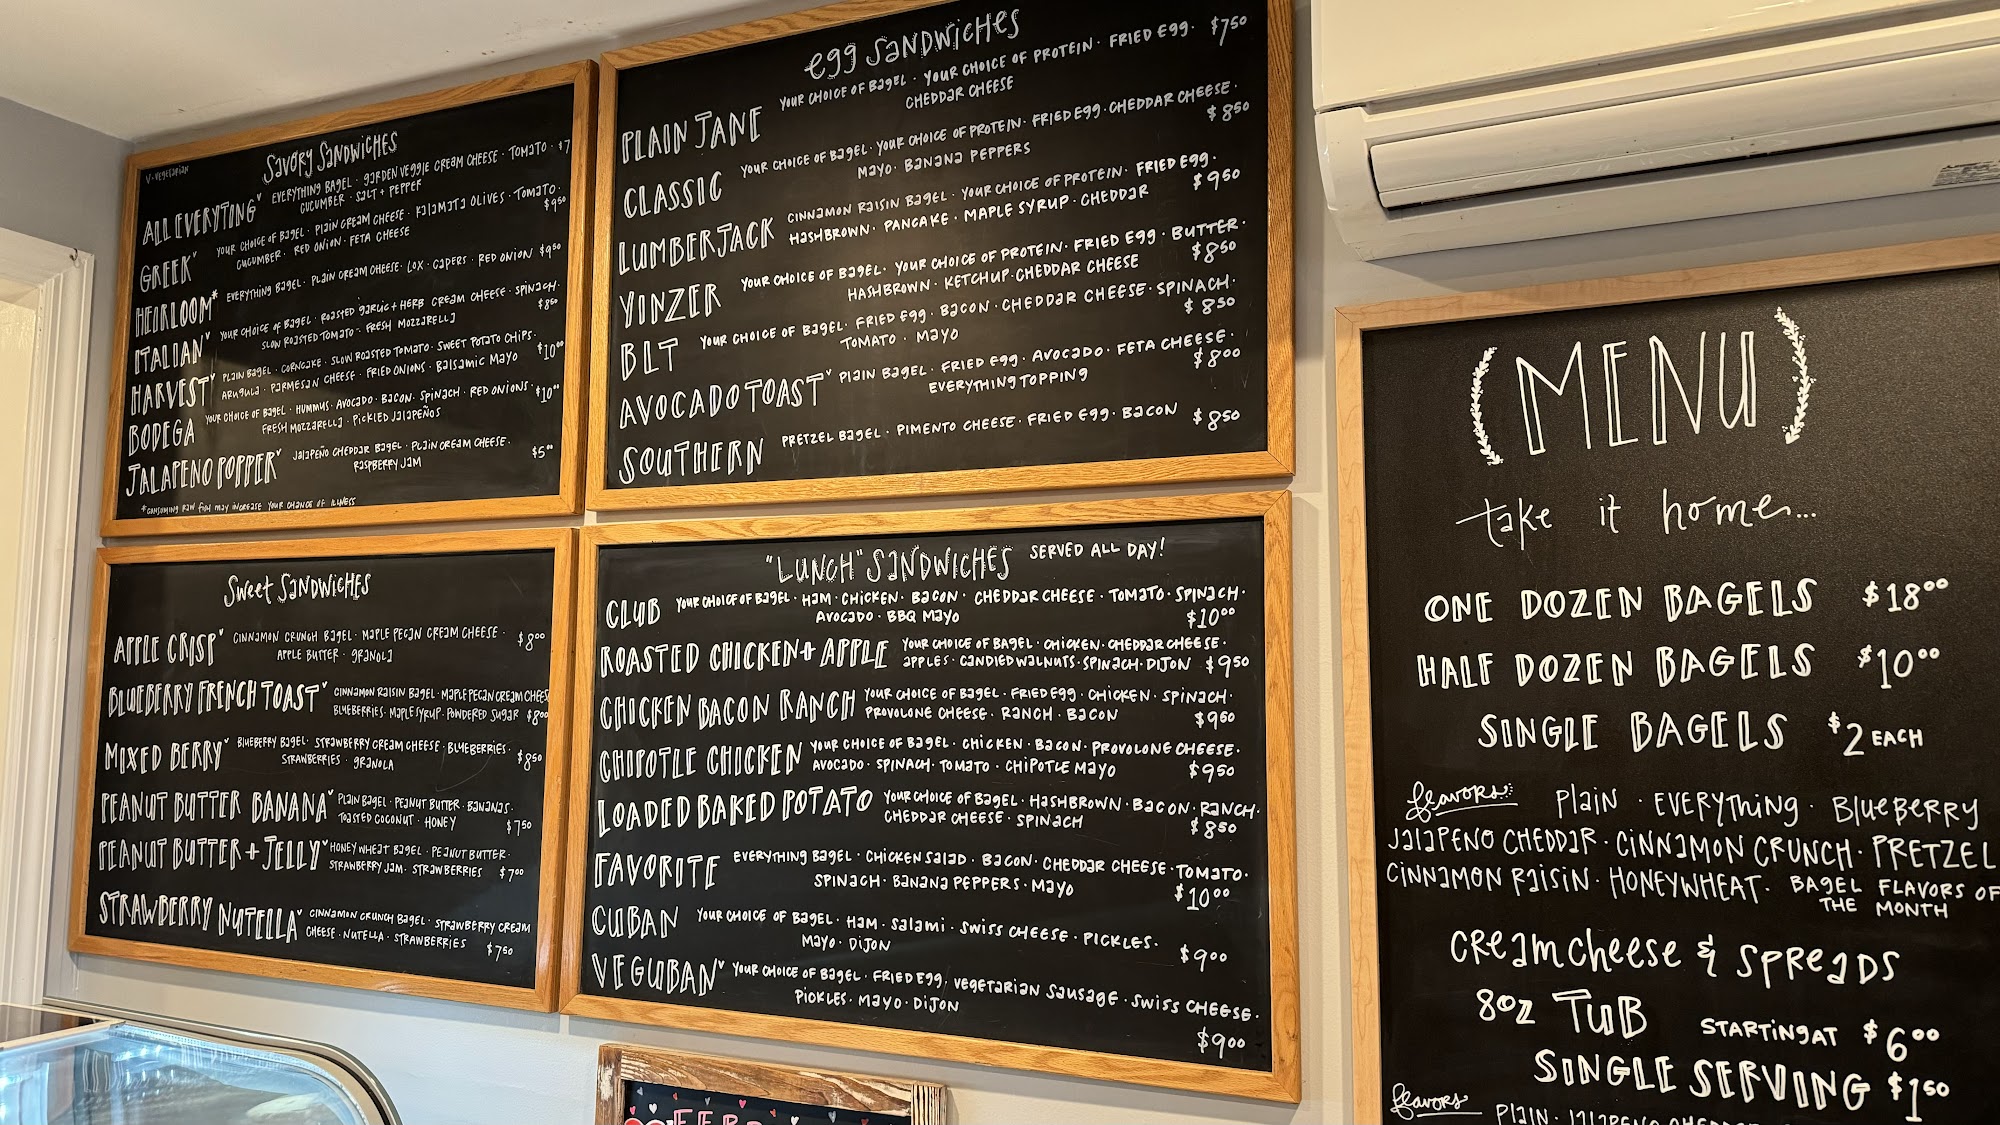 Savory Sandwiches
V-Vegetarian
ALL EVERYTING V EVERYTHING BAGEL · GARDEN VEGGIE CREAM CHEESE · TOMATO · $7
CUCUMBER · SALT + PEPPER
GREEK V YOUR CHOICE OF BAGEL · PLAIN CREAM CHEESE · KALAMATA OLIVES · TOMATO ·
CUCUMBER · RED ONION · FETA CHEESE $9.50
HEIRLOOM* EVERYTHING BAGEL · PLAIN CREAM CHEESE · LOX · CAPERS · RED ONION $9.50
ITALIAN V YOUR CHOICE OF BAGEL · ROASTED GARLIC + HERB CREAM CHEESE · SPINACH ·
SLOW ROASTED TOMATO · FRESH MOZZARELLA $8.50
HARVEST V PLAIN BAGEL · CORNCAKE · SLOW ROASTED TOMATO · SWEET POTATO CHIPS ·
ARUGULA · PARMESAN CHEESE · FRIED ONIONS · BALSAMIC MAYO $10.00
BODEGA YOUR CHOICE OF BAGEL · HUMMUS · AVOCADO · BACON · SPINACH · RED ONIONS · $10.00
FRESH MOZZARELLA · PICKLED JALAPEÑOS
JALAPENO POPPER V JALAPEÑO CHEDDAR BAGEL · PLAIN CREAM CHEESE · $5.00
RASPBERRY JAM
*CONSUMING RAW FISH MAY INCREASE YOUR CHANCE OF ILLNESS
egg SANDWICHES
PLAIN JANE YOUR CHOICE OF BAGEL · YOUR CHOICE OF PROTEIN · FRIED EGG · $7.50
CHEDDAR CHEESE
CLASSIC YOUR CHOICE OF BAGEL · YOUR CHOICE OF PROTEIN · FRIED EGG · CHEDDAR CHEESE ·
MAYO · BANANA PEPPERS $8.50
LUMBERJACK CINNAMON RAISIN BAGEL · YOUR CHOICE OF PROTEIN · FRIED EGG ·
HASHBROWN · PANCAKE · MAPLE SYRUP · CHEDDAR $9.50
YINZER YOUR CHOICE OF BAGEL · YOUR CHOICE OF PROTEIN · FRIED EGG · BUTTER ·
HASHBROWN · KETCHUP · CHEDDAR CHEESE $8.50
BLT YOUR CHOICE OF BAGEL · FRIED EGG · BACON · CHEDDAR CHEESE · SPINACH ·
TOMATO · MAYO $8.50
AVOCADO TOAST V PLAIN BAGEL · FRIED EGG · AVOCADO · FETA CHEESE ·
EVERYTHING TOPPING $8.00
SOUTHERN PRETZEL BAGEL · PIMENTO CHEESE · FRIED EGG · BACON $8.50
Sweet SANDWICHES
APPLE CRISP V CINNAMON CRUNCH BAGEL · MAPLE PECAN CREAM CHEESE · $8.00
APPLE BUTTER · GRANOLA
BLUEBERRY FRENCH TOAST V CINNAMON RAISIN BAGEL · MAPLE PECAN CREAM CHEESE
BLUEBERRIES · MAPLE SYRUP · POWDERED SUGAR $8.00
MIXED BERRY V BLUEBERRY BAGEL · STRAWBERRY CREAM CHEESE · BLUEBERRIES · $8.50
STRAWBERRIES · GRANOLA
PEANUT BUTTER BANANA V PLAIN BAGEL · PEANUT BUTTER · BANANAS ·
TOASTED COCONUT · HONEY $7.50
PEANUT BUTTER + JELLY V HONEY WHEAT BAGEL · PEANUT BUTTER ·
STRAWBERRY JAM · STRAWBERRIES $7.00
STRAWBERRY NUTELLA V CINNAMON CRUNCH BAGEL · STRAWBERRY CREAM
CHEESE · NUTELLA · STRAWBERRIES $7.50
"LUNCH" SANDWICHES SERVED ALL DAY!
CLUB YOUR CHOICE OF BAGEL · HAM · CHICKEN · BACON · CHEDDAR CHEESE · TOMATO · SPINACH ·
AVOCADO · BBQ MAYO $10.00
ROASTED CHICKEN + APPLE YOUR CHOICE OF BAGEL · CHICKEN · CHEDDAR CHEESE ·
APPLES · CANDIED WALNUTS · SPINACH · DIJON $9.50
CHICKEN BACON RANCH YOUR CHOICE OF BAGEL · FRIED EGG · CHICKEN · SPINACH ·
PROVOLONE CHEESE · RANCH · BACON $9.50
CHIPOTLE CHICKEN YOUR CHOICE OF BAGEL · CHICKEN · BACON · PROVOLONE CHEESE ·
AVOCADO · SPINACH · TOMATO · CHIPOTLE MAYO $9.50
LOADED BAKED POTATO YOUR CHOICE OF BAGEL · HASHBROWN · BACON · RANCH ·
CHEDDAR CHEESE · SPINACH $8.50
FAVORITE EVERYTHING BAGEL · CHICKEN SALAD · BACON · CHEDDAR CHEESE · TOMATO ·
SPINACH · BANANA PEPPERS · MAYO $10.00
CUBAN YOUR CHOICE OF BAGEL · HAM · SALAMI · SWISS CHEESE · PICKLES ·
MAYO · DIJON $9.00
VEGUBAN V YOUR CHOICE OF BAGEL · FRIED EGG, VEGETARIAN SAUSAGE · SWISS CHEESE ·
PICKLES · MAYO · DIJON
$9.00
(MENU)
take it home...
ONE DOZEN BAGELS $18.00
HALF DOZEN BAGELS $10.00
SINGLE BAGELS $2 EACH
flavors: Plain · EVERYThing · BlUeBERRY
JALAPENO CHEDDAR · CINNAMON CRUNCH · PRETZEL
CINNAMON RAISIN · HONEYWHEAT · BAGEL FLAVORS OF
THE MONTH
CReamcheese & SPReaDS
8oz TUB STARTING AT $6.00
SINGLE SERVING $1.50
flavors PLAIN · JALAPENO CHEDDAR